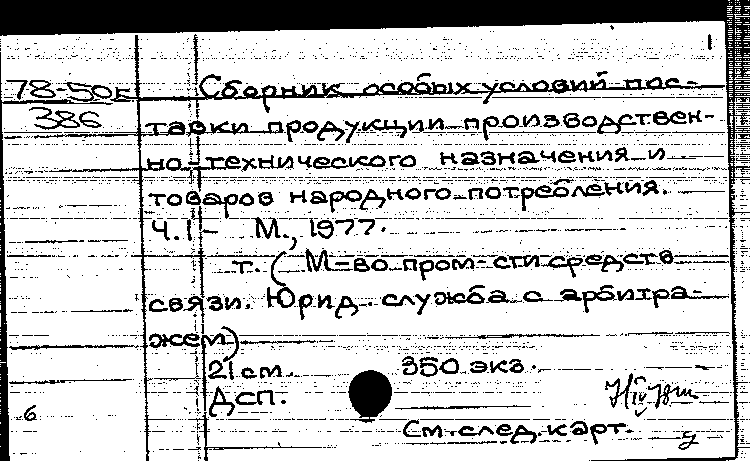 1
78-50к
386
Сборник особых условий пос-
тавки продукции производствен-
но-технического назначения и
товаров народного потребления.
Ч.1- М., 1977.
т. (М-во пром-сти средств
связи. Юрид. служба с арбитра-
жем)
21 см. 350 экз.
ДСП.
6
См. след. карт.